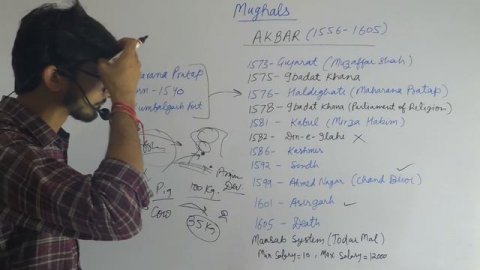 Mughals
AKBAR (1556-1605)
1573- Gujarat (Muzaffar Shah)
1575- Ibadat Khana
1576- Haldighati (Maharana Pratap)
1578- Ibadat Khana (Parliament of Religion)
1581- Kabul (Mirza Hakim)
1582- Din-e-Ilahe ×
1586- Kashmir
1592- Sindh ✓
1599- Ahmed Nagar (Chand Bibi)
1601- Asirgarh ✓
1605- Death
Mansab System (Todar Mal)
Min Salary=10, Max Salary=12000
arana Pratap
rn-1540
umbalgarh fort
Pig
100 Kg.
Cow
55 Kg